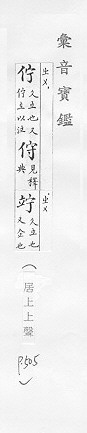 彙音寶鑑
ㄓㄨˋ
佇 久立也又
佇立以泣
㑏 見釋
典
ㄓㄨˋ
竚 久立也
又企也
（居上上聲
P.505）